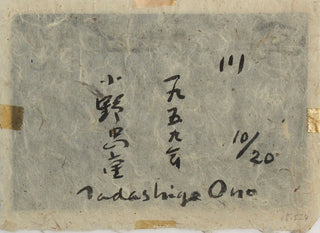 川
10/20
一九五九年
小野忠重
Tadashige Ono